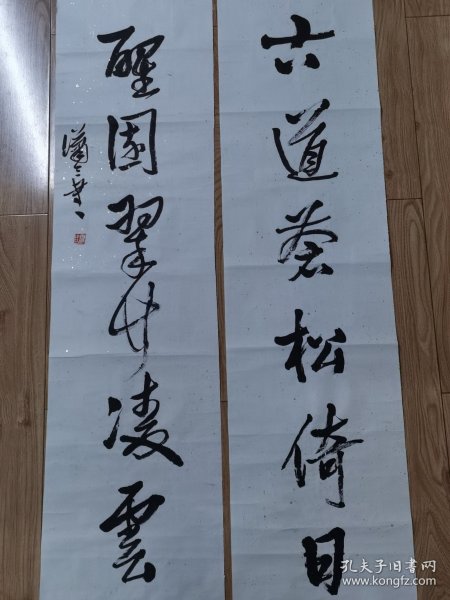 古道苍松倚日
醒园翠竹凌雲
孔夫子旧书网
www.kongfz.com